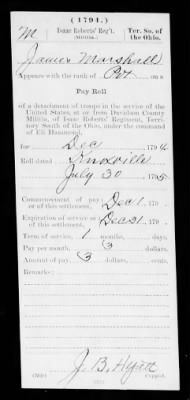 (1794.)
M
Isaac Roberts' Reg't.
(MILITIA.)
Ter. So. of
the Ohio.
James Marshall
Appears with the rank of Pvt on a
Pay Roll
of a detachment of troops in the service of the
United States, at or from Davidson County
Militia, of Isaac Roberts' Regiment, Terri-
tory South of the Ohio, under the command
of Eli Hammond,
for Dec , 1794
Roll dated Knoxville
July 30 1795
Commencement of pay
or of this settlement, Dec 1 , 179 .
Expiration of service or
of this settlement, Dec 31 , 179 .
Term of service, 1 months, days.
Pay per month, 3 dollars,
Amount of pay, 3 dollars, cents.
Remarks:
J. B. Hyatt
Copyist.